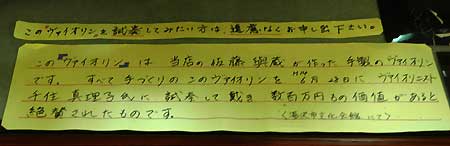 この"ヴァイオリン"を試奏してみたい方は、遠慮なくお申し出下さい。
この"ヴァイオリン"は 当店の佐藤 が作った手製のヴァイオリン
です。 すべて手づくりのこのヴァイオリンを 6月 日に ヴァイオリニスト
千住 真理子氏に 試奏して戴き 数百万円もの価値があると
絶賛されたものです。
(湯沢市文化会館にて)